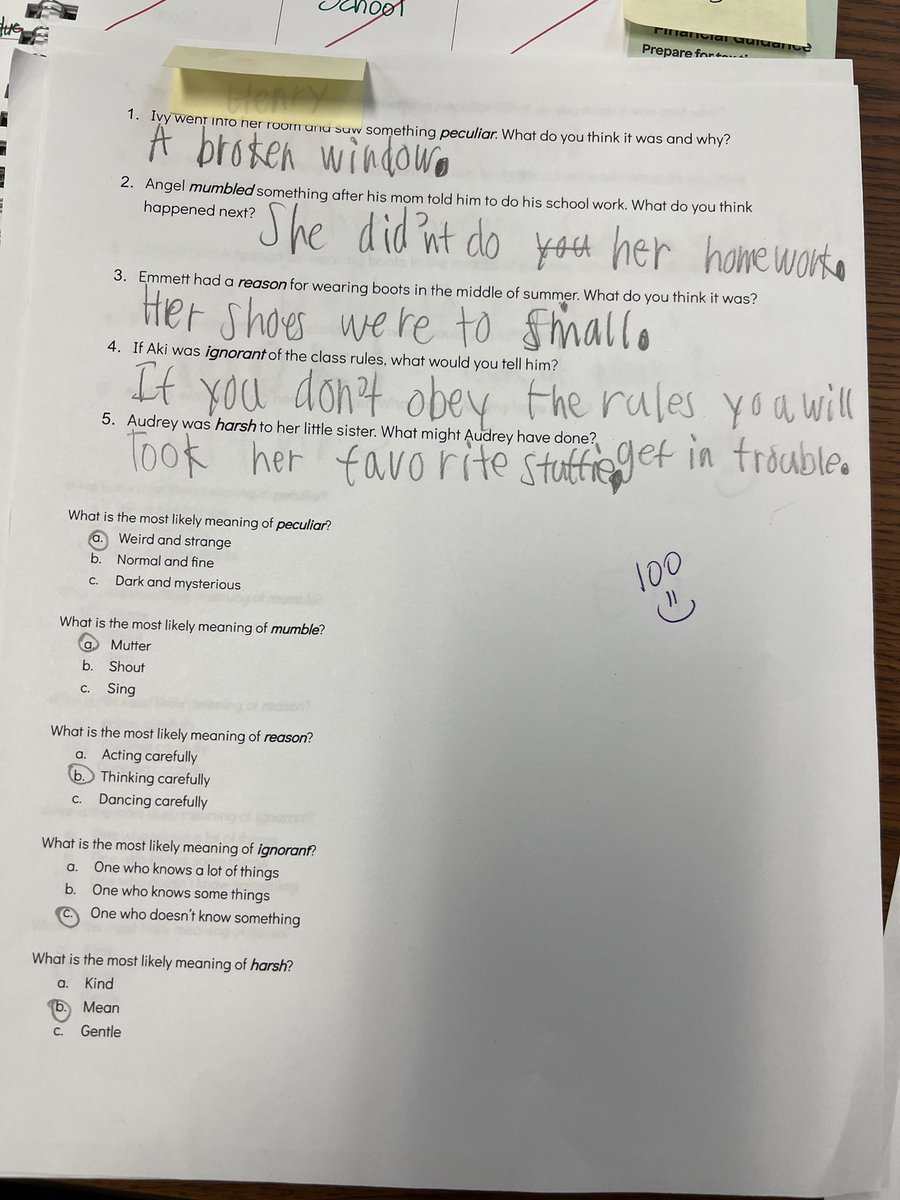 School
Financial Guidance
Prepare for
Henry
1. Ivy went into her room and saw something peculiar. What do you think it was and why?
A broken window.
2. Angel mumbled something after his mom told him to do his school work. What do you think
happened next? She did'nt do you her homework.
3. Emmett had a reason for wearing boots in the middle of summer. What do you think it was?
Her shoes were to small.
4. If Aki was ignorant of the class rules, what would you tell him?
If you don't obey the rules you will
5. Audrey was harsh to her little sister. What might Audrey have done?
Took her favorite stuffie, get in trouble.
What is the most likely meaning of peculiar?
a. Weird and strange
b. Normal and fine
c. Dark and mysterious
100
What is the most likely meaning of mumble?
a. Mutter
b. Shout
c. Sing
What is the most likely meaning of reason?
a. Acting carefully
b. Thinking carefully
c. Dancing carefully
What is the most likely meaning of ignorant?
a. One who knows a lot of things
b. One who knows some things
c. One who doesn't know something
What is the most likely meaning of harsh?
a. Kind
b. Mean
c. Gentle